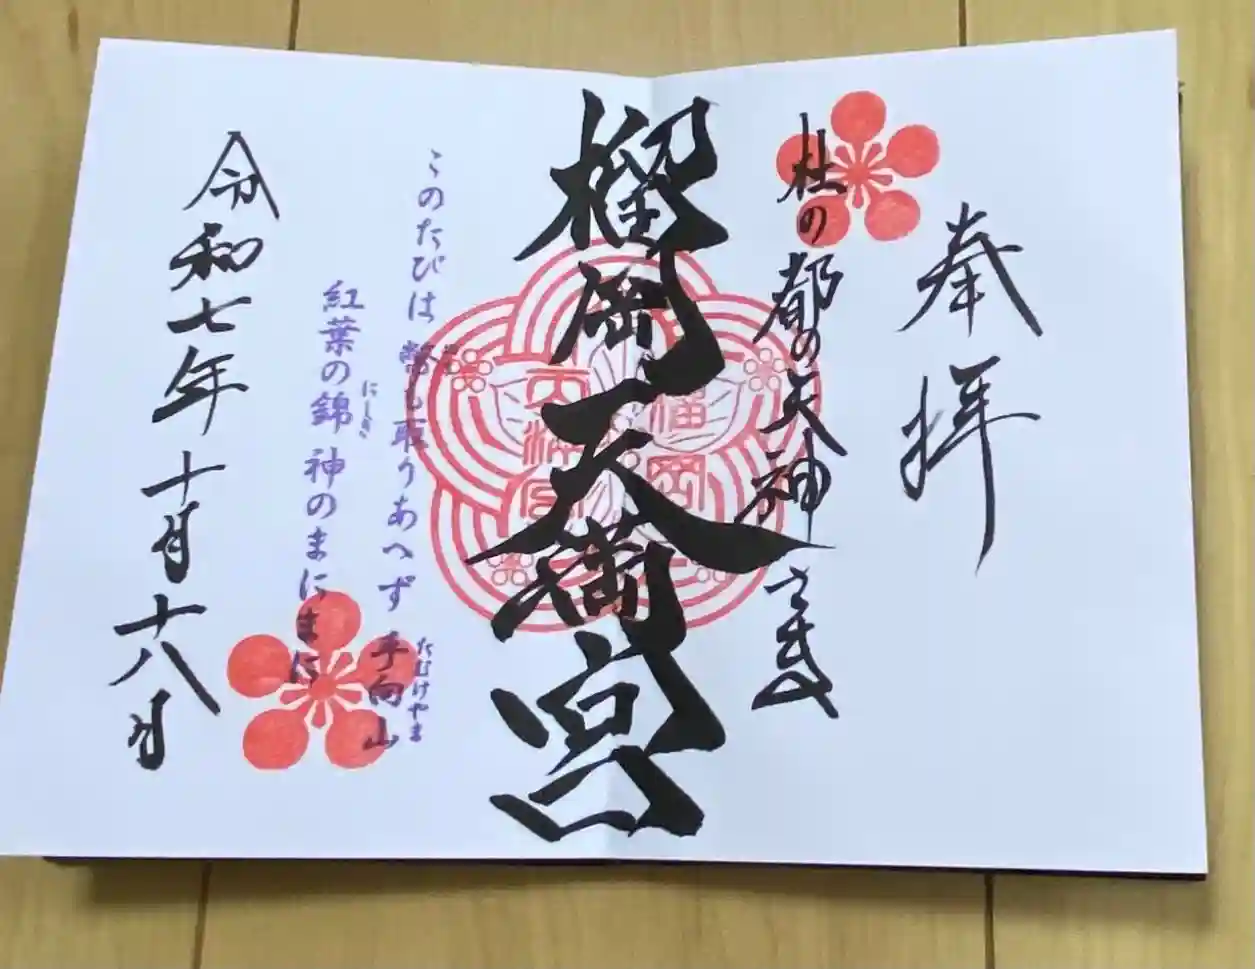 奉拝
杜の都の天神さま
榴岡天満宮
榴岡
天満宮
このたびは幣も取りあへず 手向山
たむけやま
紅葉の錦 神のまにまに
にしき
令和七年十月十八日